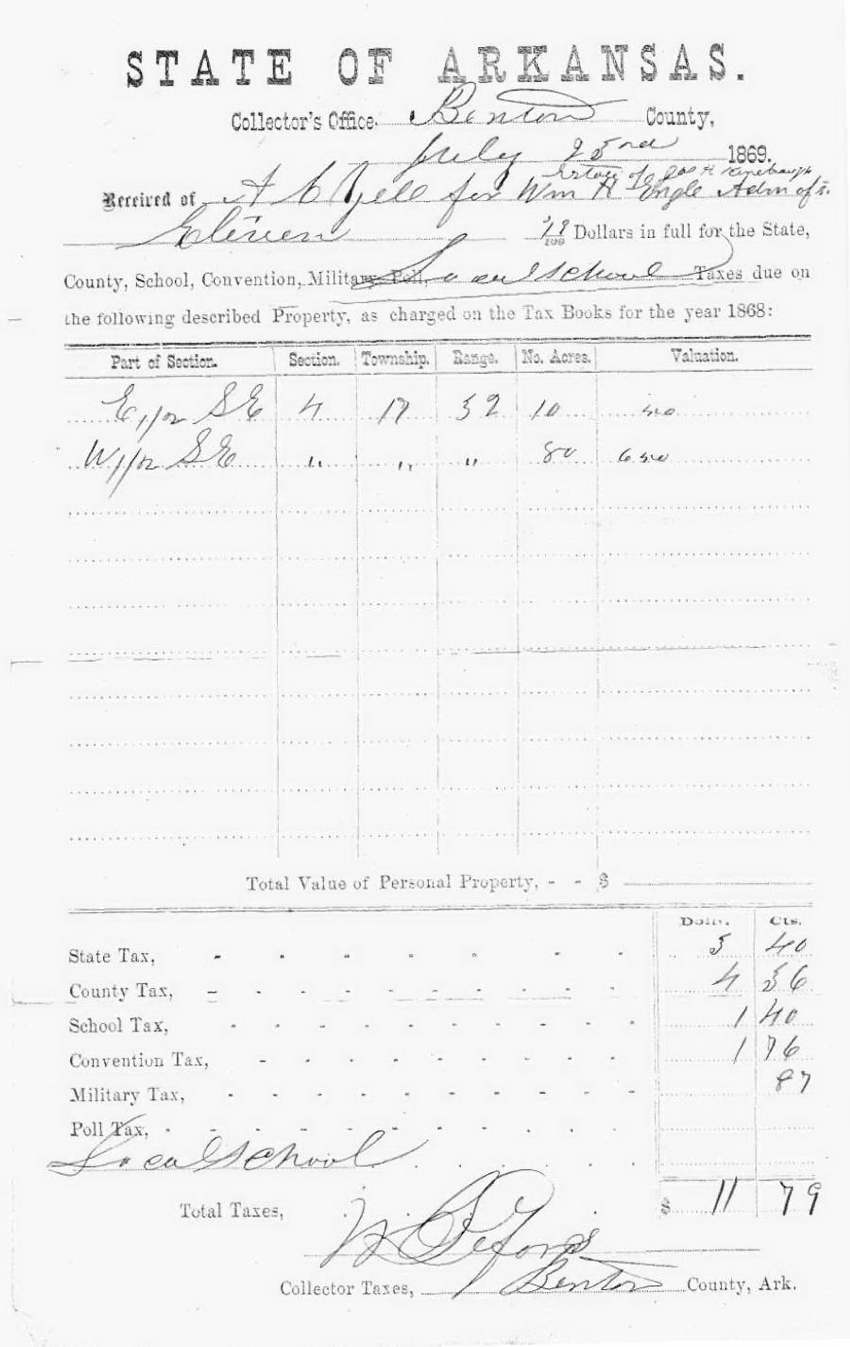 STATE OF ARKANSAS.
Collector's Office. Benton County,
July 23rd 1869.
Estate of
Received of A C Yell for Wm H Engle Adm of s.
Eleven 79/100 Dollars in full for the State,
County, School, Convention, Military Poll, Local School Taxes due on
the following described Property, as charged on the Tax Books for the year 1868:
Part of Section. Section. Township. Range. No. Acres. Valuation.
E 1/2 SE 4 32 10
W 1/2 SE " " " 80
Total Value of Personal Property, - - $
Dolls. Cts.
State Tax, 3 40
County Tax, 4 36
School Tax, 1 40
Convention Tax, 1 76
Military Tax, 87
Poll Tax,
Local School
Total Taxes, $ 11 79
Collector Taxes, Benton County, Ark.